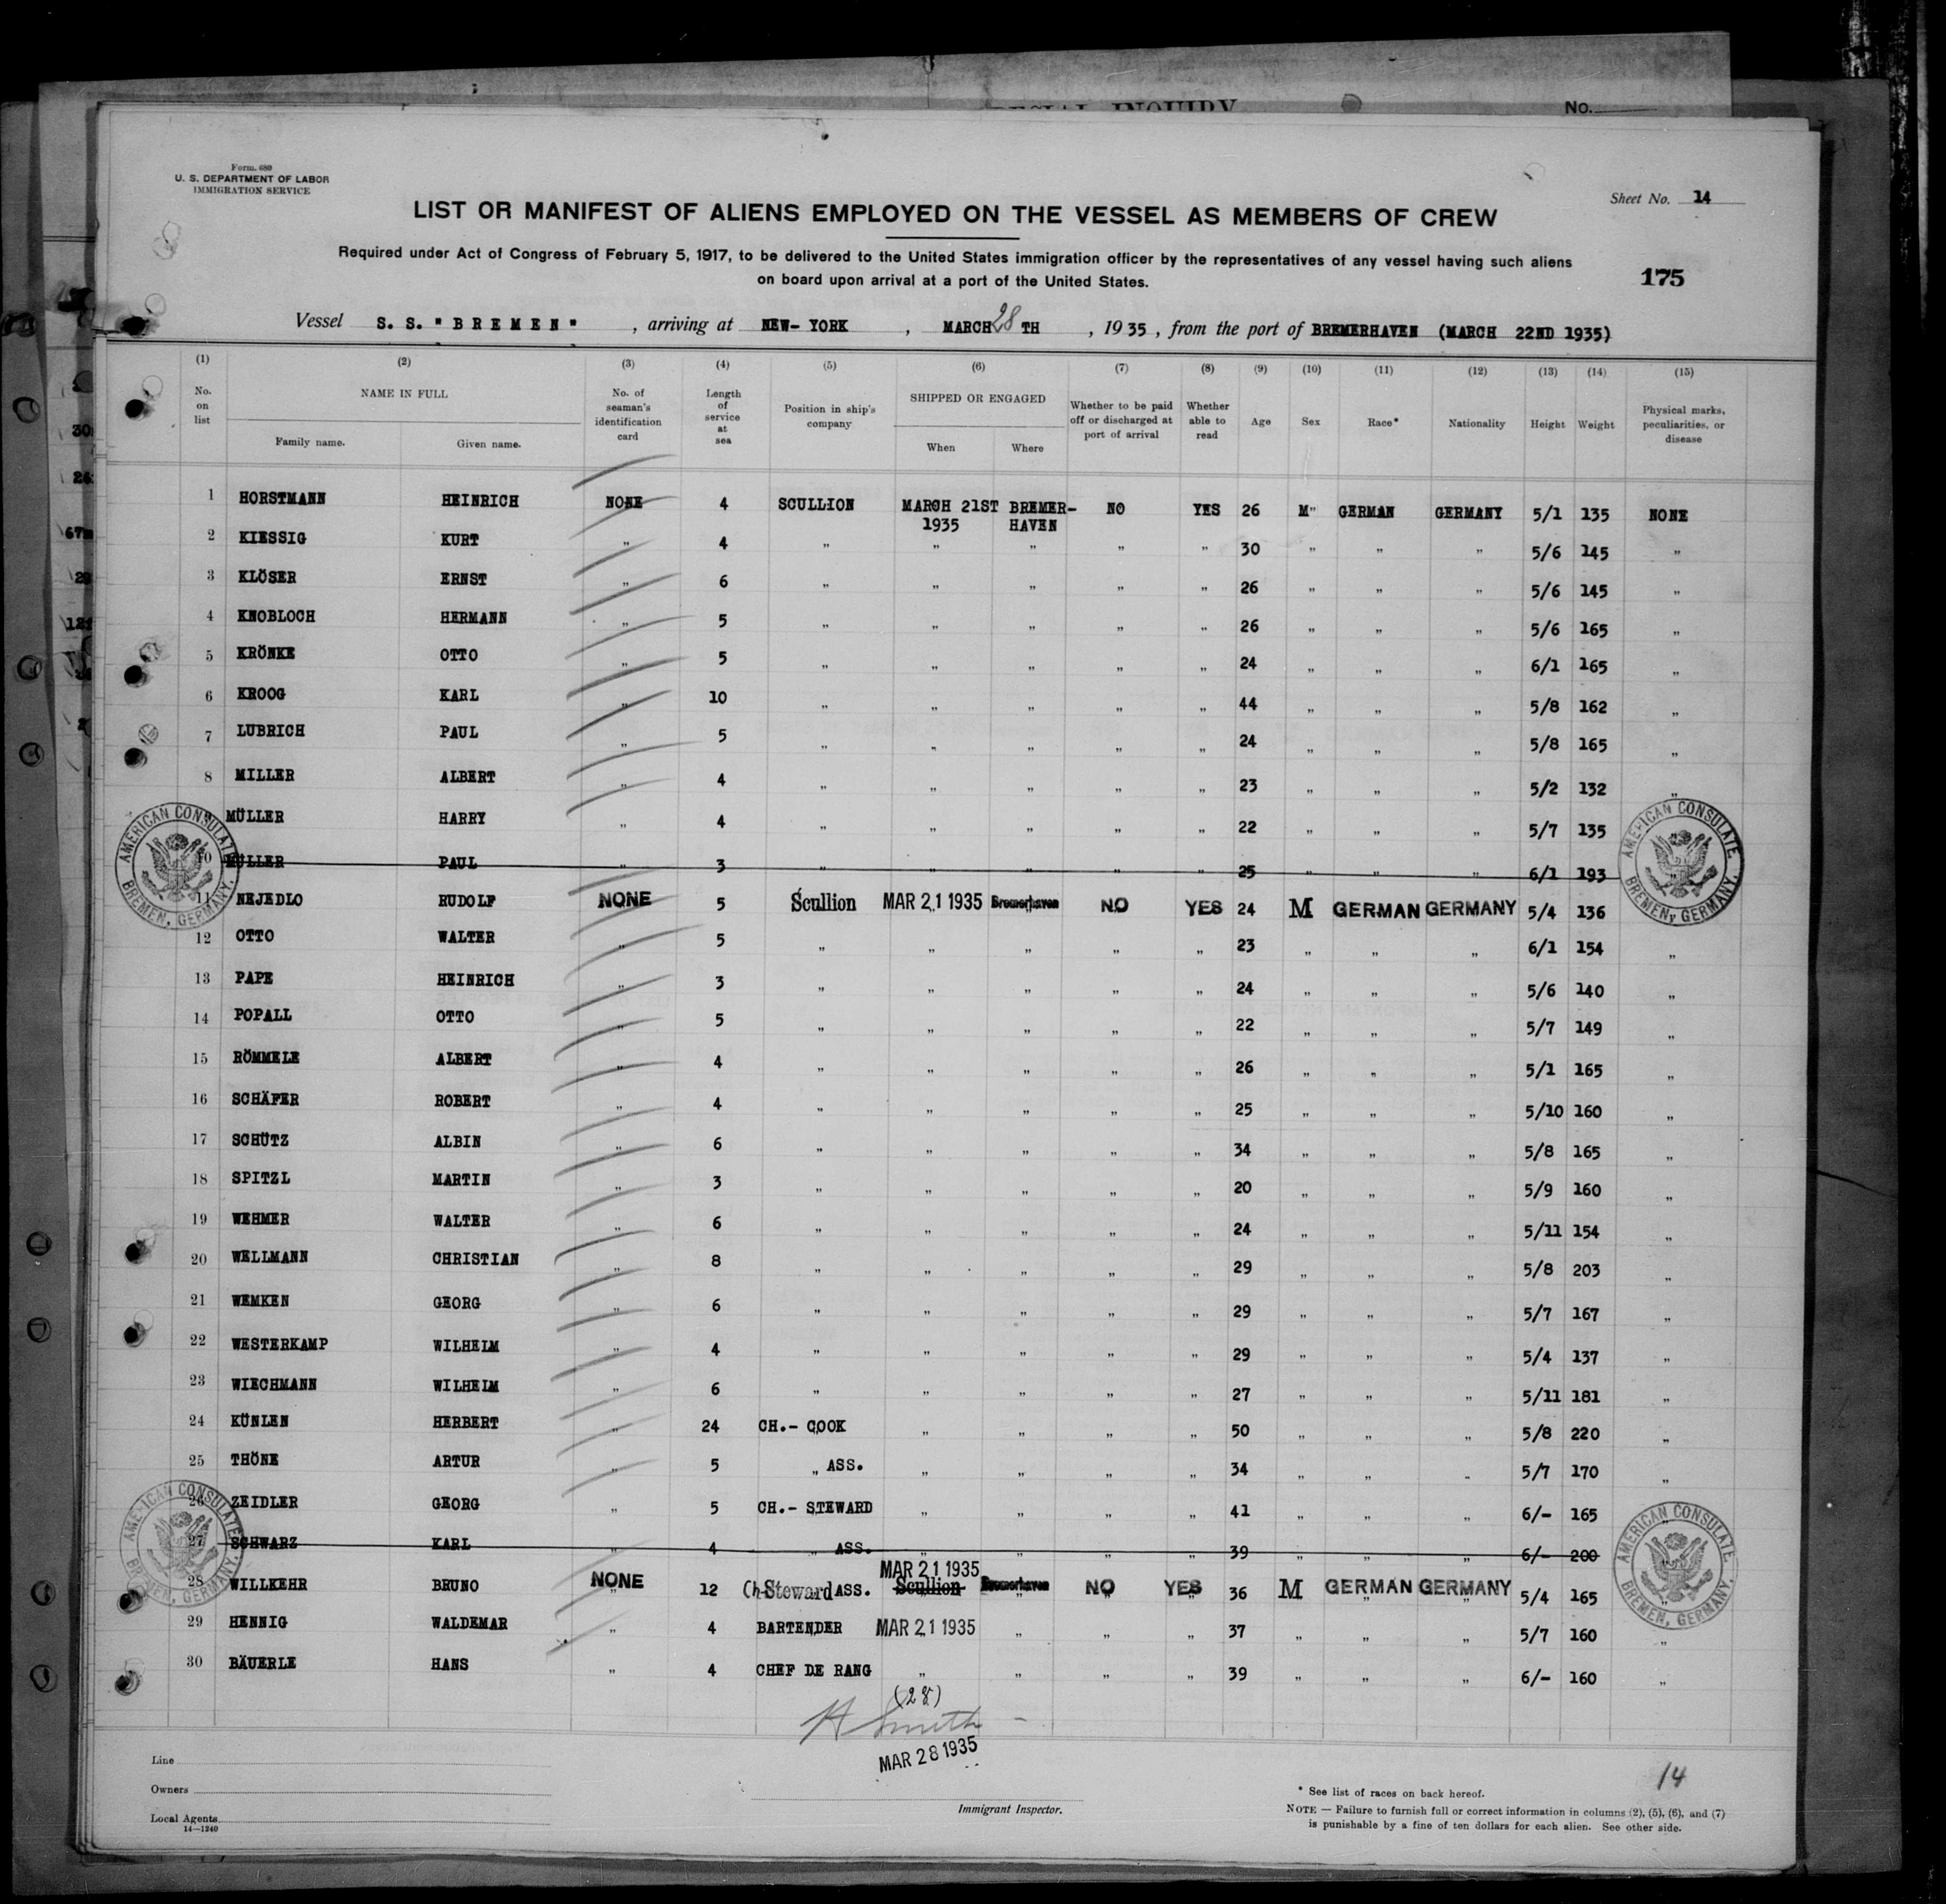 SPECIAL INQUIRY
No.
Form 680
U. S. DEPARTMENT OF LABOR
IMMIGRATION SERVICE
Sheet No. 14
LIST OR MANIFEST OF ALIENS EMPLOYED ON THE VESSEL AS MEMBERS OF CREW
Required under Act of Congress of February 5, 1917, to be delivered to the United States immigration officer by the representatives of any vessel having such aliens
on board upon arrival at a port of the United States.
175
Vessel S. S. "BREMEN" , arriving at NEW-YORK , MARCH 28 TH , 1935 , from the port of BREMERHAVEN (MARCH 22ND 1935)
(1) (2) (3) (4) (5) (6) (7) (8) (9) (10) (11) (12) (13) (14) (15)
No. on list NAME IN FULL Family name. Given name. No. of seaman's identification card Length of service at sea Position in ship's company SHIPPED OR ENGAGED When Where Whether to be paid off or discharged at port of arrival Whether able to read Age Sex Race* Nationality Height Weight Physical marks, peculiarities, or disease
1 HORSTMANN HEINRICH NONE 4 SCULLION MARCH 21ST 1935 BREMER-HAVEN NO YES 26 M" GERMAN GERMANY 5/1 135 NONE
2 KIESSIG KURT " 4 " " " " " 30 " " " 5/6 145 "
3 KLÖSER ERNST " 6 " " " " " 26 " " " 5/6 145 "
4 KNOBLOCH HERMANN " 5 " " " " " 26 " " " 5/6 165 "
5 KRÖNKE OTTO " 5 " " " " " 24 " " " 6/1 165 "
6 KROOG KARL " 10 " " " " " 44 " " " 5/8 162 "
7 LUBRICH PAUL " 5 " " " " " 24 " " " 5/8 165 "
8 MILLER ALBERT " 4 " " " " " 23 " " " 5/2 132 "
MÜLLER HARRY " 4 " " " " " 22 " " " 5/7 135
10 MÜLLER PAUL " 3 " " " " " 25 " " " 6/1 193 "
11 NEJEDLO RUDOLF NONE 5 Scullion MAR 21 1935 Bremerhaven NO YES 24 M GERMAN GERMANY 5/4 136 "
12 OTTO WALTER " 5 " " " " " 23 " " " 6/1 154 "
13 PAPE HEINRICH " 3 " " " " " 24 " " " 5/6 140 "
14 POPALL OTTO " 5 " " " " " 22 " " " 5/7 149 "
15 RÖMMELE ALBERT " 4 " " " " " 26 " " " 5/1 165 "
16 SCHÄFER ROBERT " 4 " " " " " 25 " " " 5/10 160 "
17 SCHÜTZ ALBIN " 6 " " " " " 34 " " " 5/8 165 "
18 SPITZL MARTIN " 3 " " " " " 20 " " " 5/9 160 "
19 WEHMER WALTER " 6 " " " " " 24 " " " 5/11 154 "
20 WELLMANN CHRISTIAN " 8 " " " " " 29 " " " 5/8 203 "
21 WEMKEN GEORG " 6 " " " " " 29 " " " 5/7 167 "
22 WESTERKAMP WILHELM " 4 " " " " " 29 " " " 5/4 137 "
23 WIECHMANN WILHELM " 6 " " " " " 27 " " " 5/11 181 "
24 KÜNLEN HERBERT " 24 CH.- COOK " " " " 50 " " " 5/8 220 "
25 THÖNE ARTUR " 5 " ASS. " " " " 34 " " " 5/7 170 "
26 ZEIDLER GEORG " 5 CH.- STEWARD " " " " 41 " " " 6/- 165 "
27 SCHWARZ KARL " 4 " ASS. " " " " 39 " " " 6/- 200
28 WILLKEHR BRUNO NONE 12 Ch-Steward ASS. MAR 21 1935 Scullion Bremerhaven NO YES 36 M GERMAN GERMANY 5/4 165 "
29 HENNIG WALDEMAR " 4 BARTENDER MAR 21 1935 " " " 37 " " " 5/7 160 "
30 BÄUERLE HANS " 4 CHEF DE RANG " " " " 39 " " " 6/- 160 "
AMERICAN CONSULATE BREMEN, GERMANY.
AMERICAN CONSULATE BREMEN, GERMANY.
AMERICAN CONSULATE, BREMEN, GERMANY.
AMERICAN CONSULATE, BREMEN, GERMANY.
(28)
H Smith
MAR 28 1935
Immigrant Inspector.
Line
Owners
Local Agents
14—1240
14
* See list of races on back hereof.
NOTE — Failure to furnish full or correct information in columns (2), (5), (6), and (7)
is punishable by a fine of ten dollars for each alien. See other side.